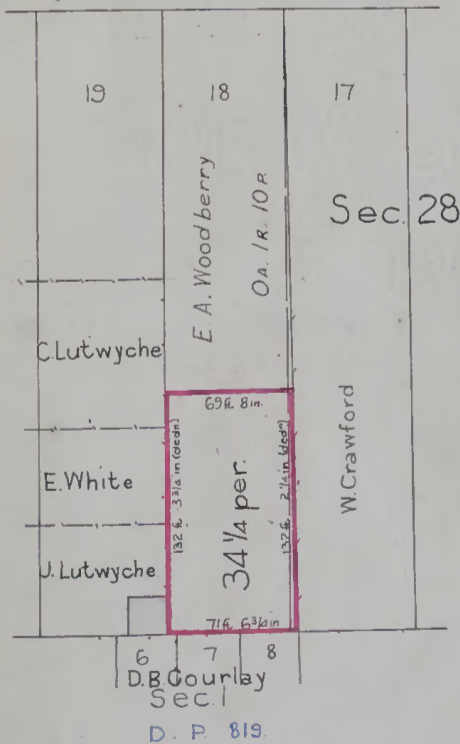 19
18
17
Sec. 28
E. A. Woodberry
0A. 1R. 10P.
C. Lutwyche
E. White
J. Lutwyche
W. Crawford
69ft. 8in.
132 ft 3 3/4 in (dedn)
34 1/4 per.
132 ft 2 1/4 in (dedn)
71ft. 6 3/4 in
6
7
8
D. B. Gourlay
Sec. 1
D. P. 819.